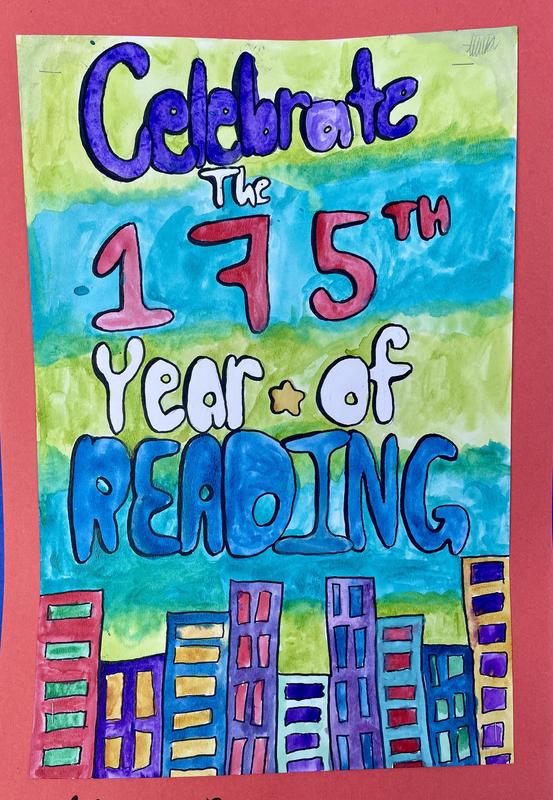 Celebrate
The
175TH
Year of
READING